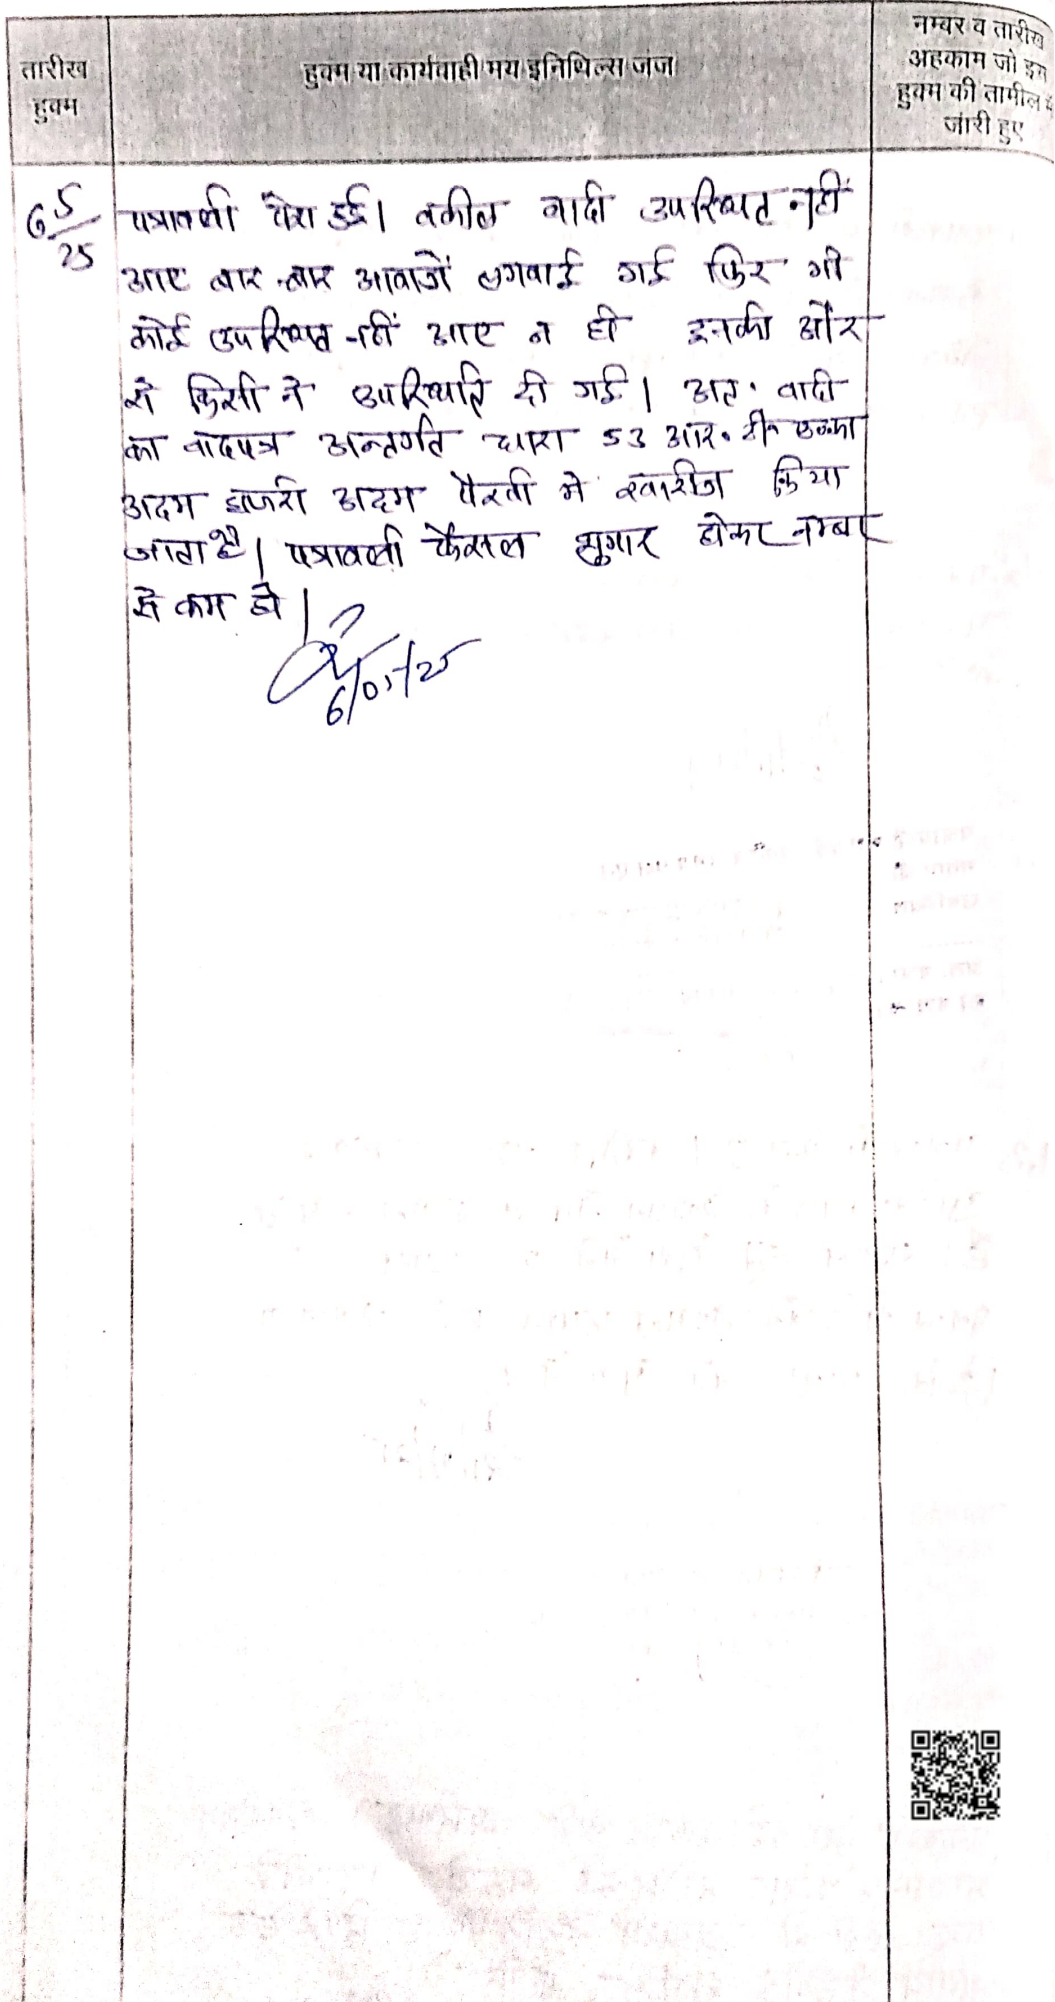 तारीख
हुक्म
हुक्म या कार्यवाही मय इनिधिल्स जंज
नम्बर व तारीख
अहकाम जो इस
हुक्म की तामील में
जारी हुए
6 5/25
पत्रावली पेश हुई। वकील वादी उपस्थित नहीं
आए बार-बार आवाजें लगवाई गई फिर भी
कोई उपस्थित नहीं आए न ही इनकी और
से किसी ने उपस्थिति दी गई। अतः वादी
का वादपत्र अन्तर्गत धारा 53 आर. टी. एक्ट
अदम हाजरी अदम पैरवी में खारीज किया
जाता है। पत्रावली फैसल सुमार होकर नम्बर
से कम हो।
6/05/25